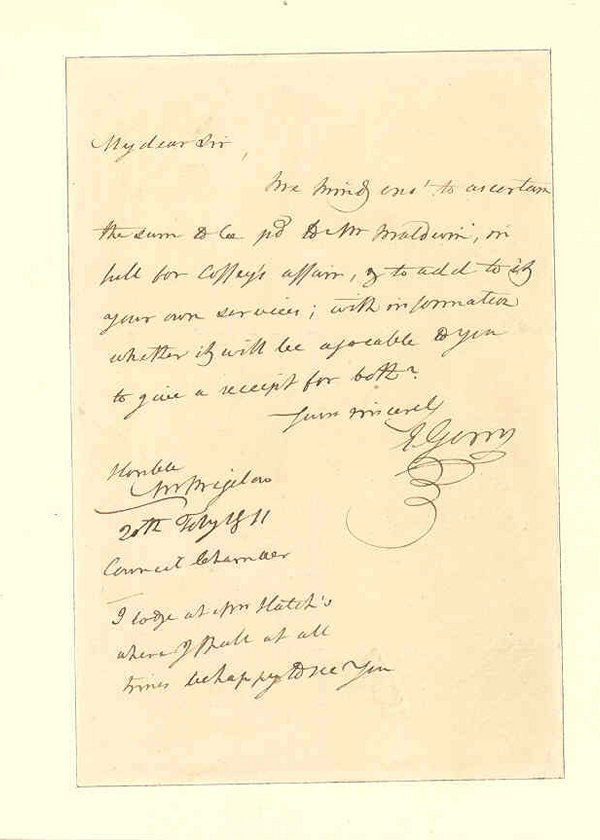 My dear Sir,
to ascertain
the sum to be pd to Mr Baldwin, in
full for Coffey's affair, & to add to it
your own services; with information
whether it will be agreeable to you
to give a receipt for both?
Yours sincerely
E Gerry
Honble
Mr Bigelow
20th Feby 1811
Council Chamber
I lodge at Mrs Hatch's
where I shall at all
times be happy to see you